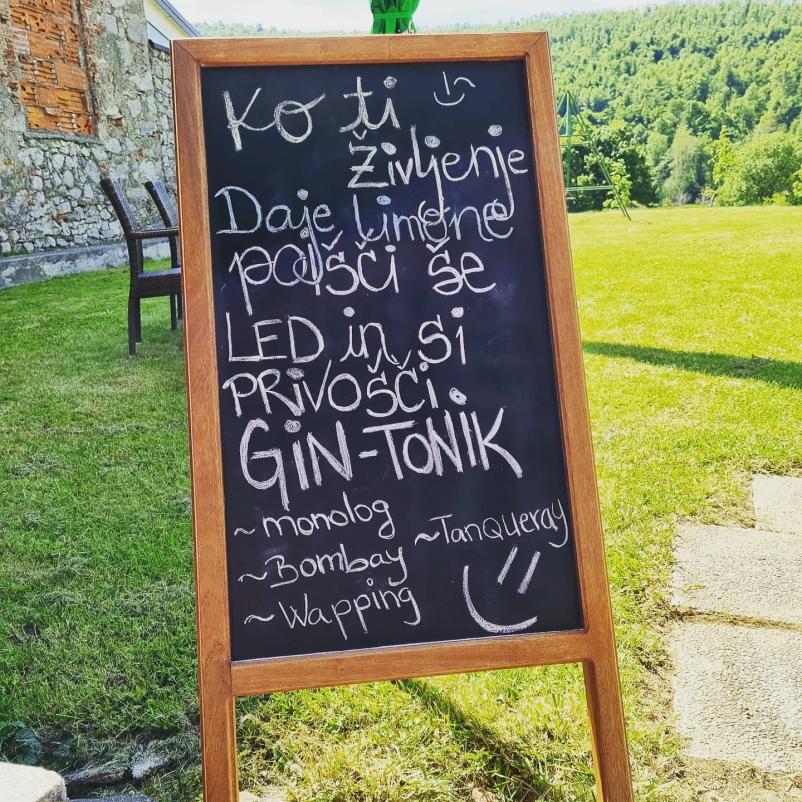 Ko ti
življenje
Daje limone
poišči še
LED in si
PRiVOŠČi
GiN-TONiK
~ monolog
~Tanqueray
~Bombay
~Wapping